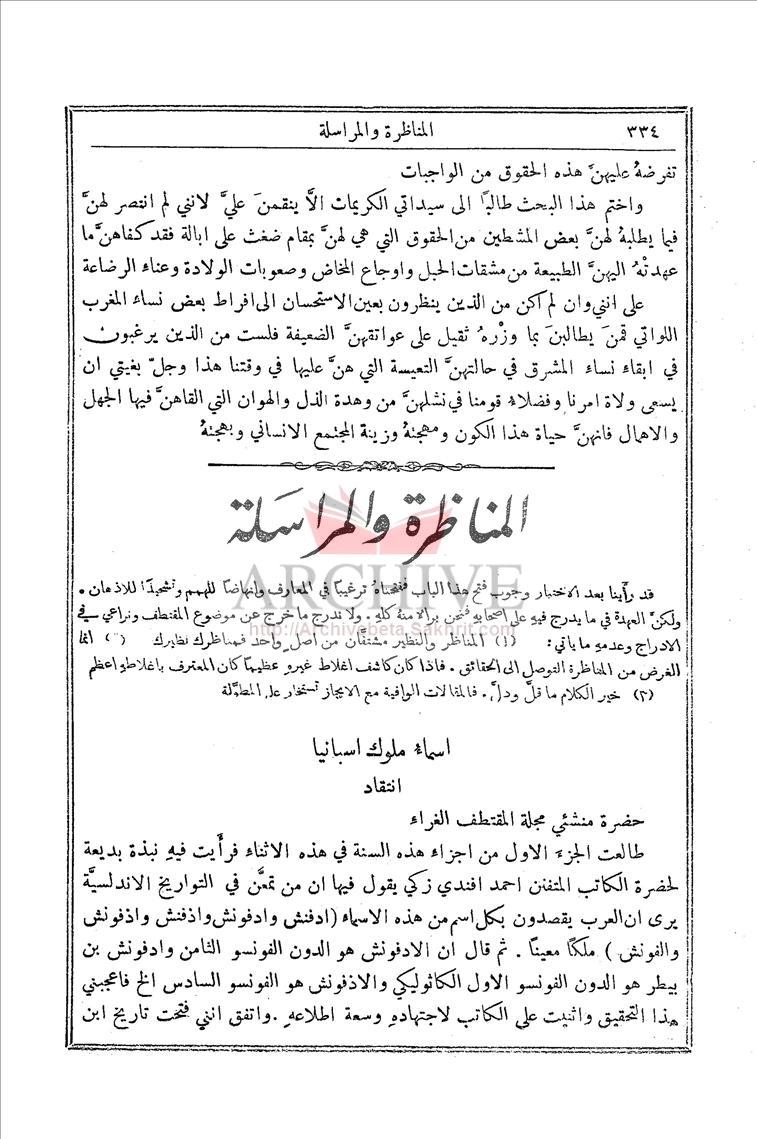 ٣٣٤ المناظرة والمراسلة
تفرضهُ عليهنَّ هذه الحقوق من الواجبات
واختم هذا البحث طالبًا الى سيداتي الكريمات الَّا ينقمنَ عليَّ لانني لم انتصر لهنَّ
فيما يطلبهُ لهنَّ بعض المشطين من الحقوق التي هي لهنَّ بمقام ضغث على ابالة فقد كفاهنَّ ما
عهدتْهُ اليهنَّ الطبيعة من مشقات الحبل واوجاع المخاض وصعوبات الولادة وعناء الرضاعة
على انني وان لم اكن من الذين ينظرون بعين الاستحسان الى افراط بعض نساء المغرب
اللواتي قمنَ يطالبنَ بما وزْرهُ ثقيل على عواتقهنَّ الضعيفة فلست من الذين يرغبون
في ابقاء نساء المشرق في حالتهنَّ التعيسة التي هنَّ عليها في وقتنا هذا وجلّ بغيتي ان
يسعى ولاة امرنا وفضلاء قومنا في نشلهنَّ من وهدة الذل والهوان التي القاهنَّ فيها الجهل
والاهمال فانهنَّ حياة هذا الكون ومهجتهُ وزينة المجتمع الانساني وبهجتهُ
المناظرة والمراسلة
ARCHIVE
http://Archivebeta.Sakhrit.com
قد رأَينا بعد الاختبار وجوب فتح هذا الباب ففتحناهُ ترغيبًا في المعارف وانهاضًا للهمم وتشحيذًا للاذهان.
ولكنَّ العهدة في ما يدرج فيهِ على اصحابهِ فنحن برالا منهُ كلهِ. ولا ندرج ما خرج عن موضوع المقتطف ونراعي في
الادراج وعدمهِ ما ياتي: (١) المناظر والنظير مشتقَّان من اصل واحد فمناظرك نظيرك (٢) انما
الغرض من المناظرة التوصل الى الحقائق. فاذا كان كاشف اغلاط غيرهِ عظيمًا كان المعترف باغلاطهِ اعظم
(٣) خير الكلام ما قلَّ ودلَّ. فالمقالات الوافية مع الايجاز تستخار على المطوَّلة
اسماء ملوك اسبانيا
انتقاد
حضرة منشئي مجلة المقتطف الغراء
طالعت الجزء الاول من اجزاء هذه السنة في هذه الاثناء فرأَيت فيهِ نبذة بديعة
لحضرة الكاتب المتفنن احمد افندي زكي يقول فيها ان من تمعَّن في التواريخ الاندلسيَّة
يرى ان العرب يقصدون بكل اسم من هذه الاسماء (ادفنش وادفونش واذفنش واذفونش
والفونش) ملكًا معينًا. ثم قال ان الادفونش هو الدون الفونسو الثامن وادفونش بن
بيطر هو الدون الفونسو الاول الكاثوليكي والاذفونش هو الفونسو السادس الخ فاعجبني
هذا التحقيق واثنيت على الكاتب لاجتهادهِ وسعة اطلاعهِ. واتفق انني فتحت تاريخ ابن